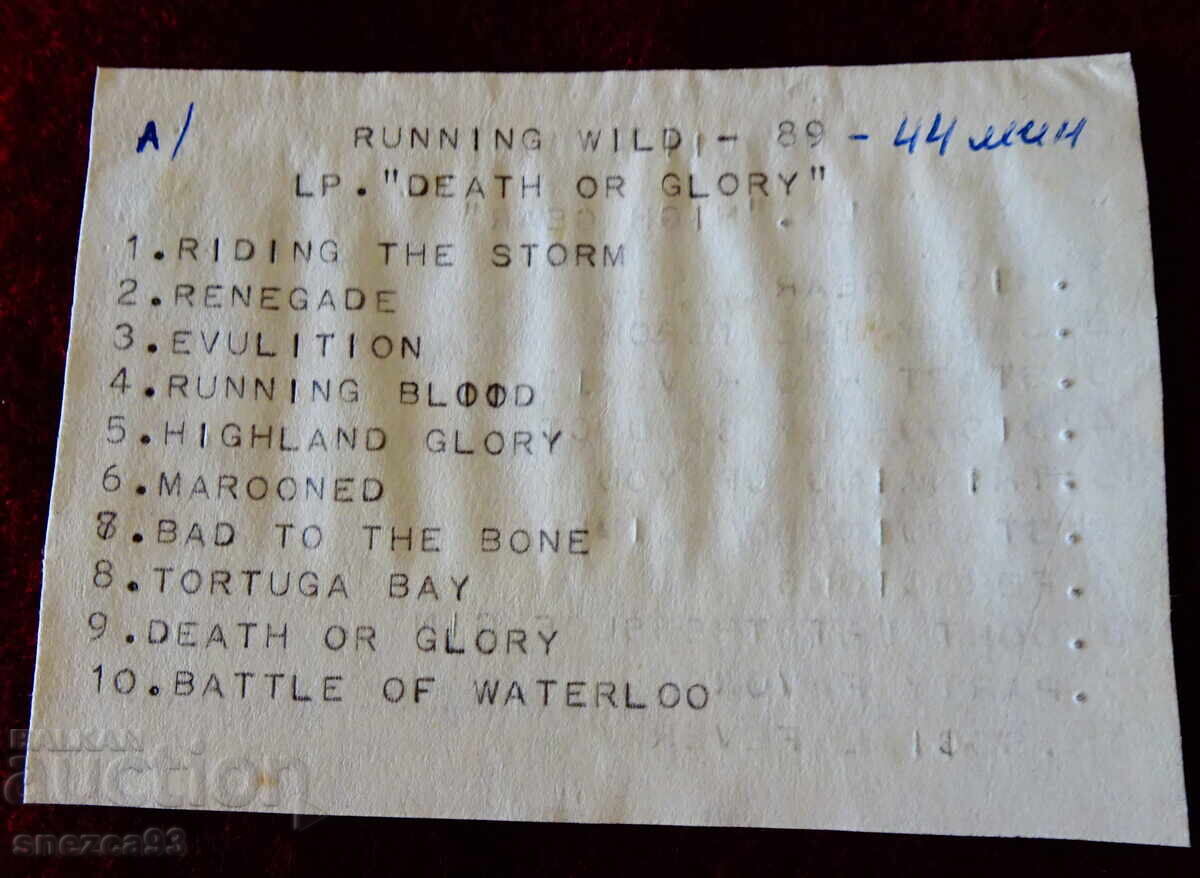 A/ RUNNING WILD - 89 - 44 мин
LP. "DEATH OR GLORY"
1. RIDING THE STORM
2. RENEGADE
3. EVULITION
4. RUNNING BLOOD
5. HIGHLAND GLORY
6. MAROONED
8. BAD TO THE BONE
8. TORTUGA BAY
9. DEATH OR GLORY
10. BATTLE OF WATERLOO
BALKAN
auction
snezca93